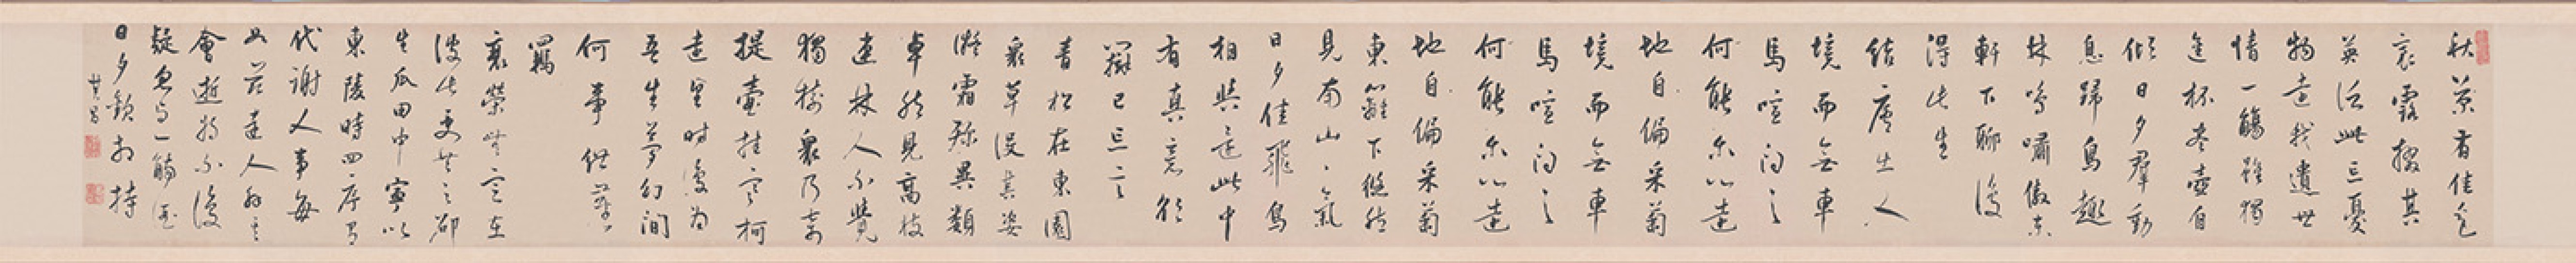 秋菊有佳色
裛露掇其
英汎此忘憂
物遠我遺世
情一觴雖獨
進杯盡壺自
傾日夕群動
息歸鳥趨
林鳴嘯傲東
軒下聊復
得此生
結廬在人
境而無車
馬喧問之
何能尔心遠
地自偏采菊
境而無車
馬喧問之
何能尔心遠
地自偏采菊
東籬下悠然
見南山々氣
日夕佳飛鳥
相與還此中
有真意欲
辯已忘言
青松在東園
衆草沒其姿
凝霜殄異類
卓然見高枝
連林人不覺
獨樹衆乃奇
提壺挂寒柯
遠望時復為
吾生夢幻間
何事紲塵
羈
衰榮無定在
彼此更共之邵
生瓜田中寧似
東陵時四序有
代謝人事每
如茲達人解其
會逝將不復
疑忽與一觴酒
日夕歡相持
其昌